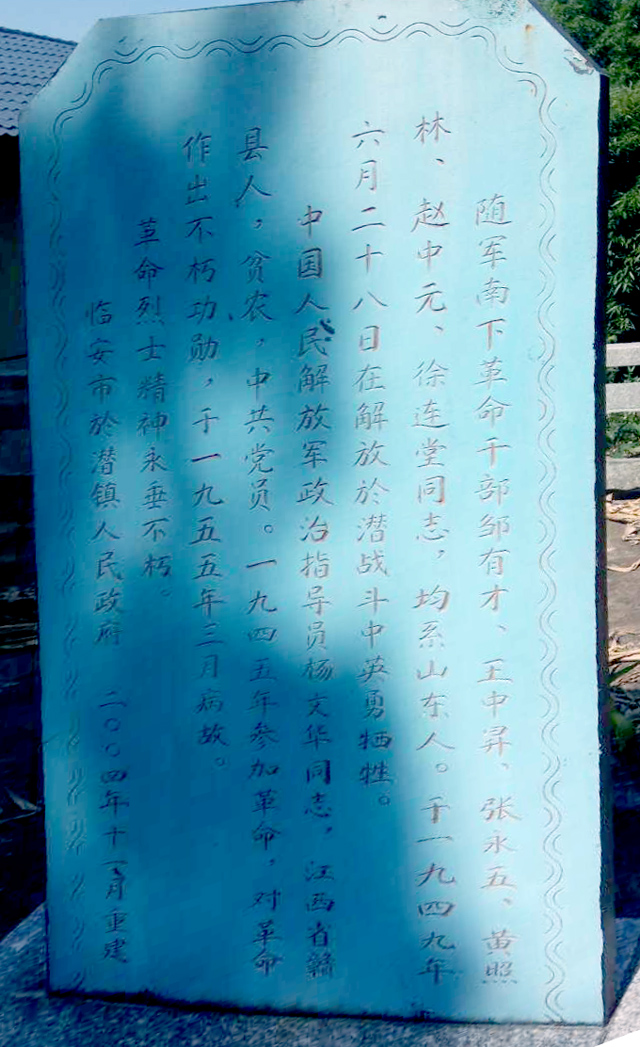 随军南下革命干部邹有才、王中昇、张永五、黄照
林、赵中元、徐连堂同志，均系山东人。于一九四九年
六月二十八日在解放於潜战斗中英勇牺牲。
中国人民解放军政治指导员杨文华同志，江西省赣
县人，贫农，中共党员。一九四五年参加革命，对革命
作出不朽功勋，于一九五五年三月病故。
革命烈士精神永垂不朽。
临安市於潜镇人民政府 二〇〇四年十一月重建